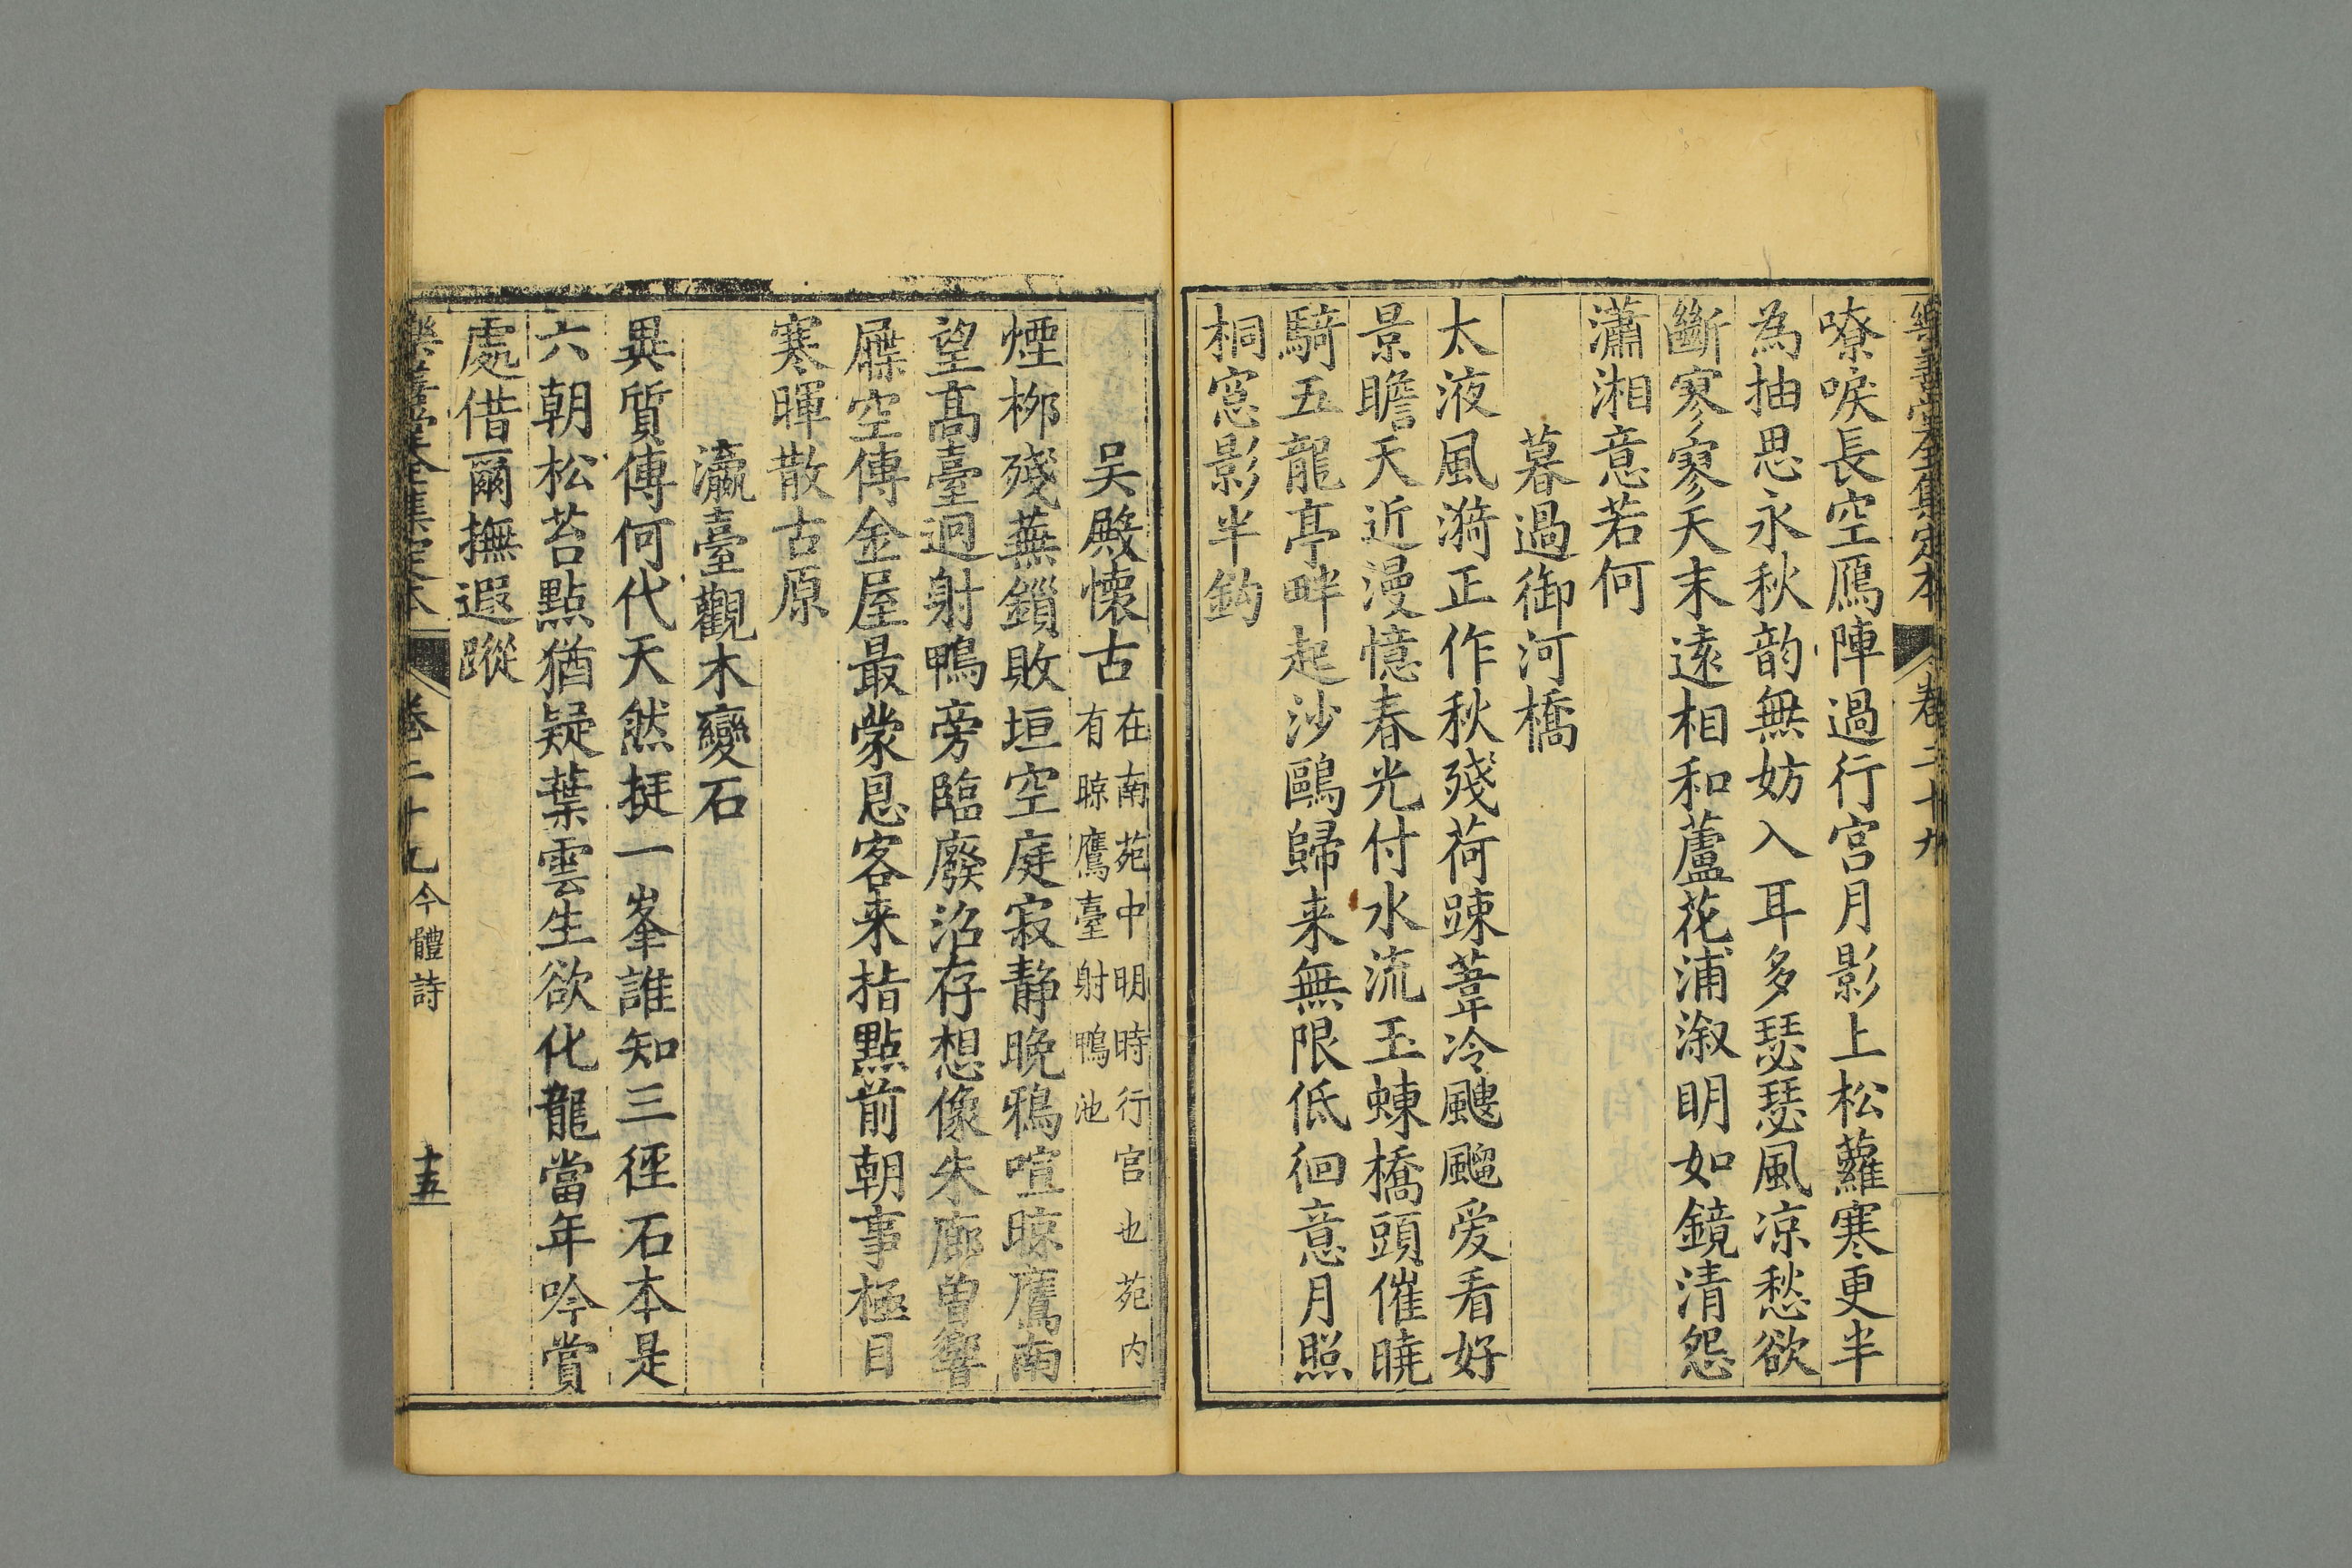 樂善堂全集定本 卷二十九
嘹唳長空鴈陣過行宮月影上松蘿寒更半
為抽思永秋韵無妨入耳多瑟瑟風凉愁欲
斷寥寥天末遠相和蘆花浦溆明如鏡清怨
瀟湘意若何
暮過御河橋
太液風漪正作秋殘荷踈葦冷颼飀爱看好
景瞻天近漫憶春光付水流玉蝀橋頭催曉
騎五龍亭畔起沙鷗歸来無限低徊意月照
桐窓影半鈎
吴殿懷古
在南苑中明時行宮也苑内
有晾鷹臺射鴨池
煙栁殘蕪鎻敗垣空庭寂静晚鴉喧晾鷹南
望髙臺迥射鴨旁臨廢沼存想像朱廊曽響
屧空傳金屋最蒙恩客来指點前朝事極目
寒暉散古原
瀛臺觀木變石
異質傳何代天然挺一峯誰知三徑石本是
六朝松苔點猶疑葉雲生欲化龍當年吟賞
處借爾撫遐蹤
樂善堂全集定本 卷二十九 今體詩 十五